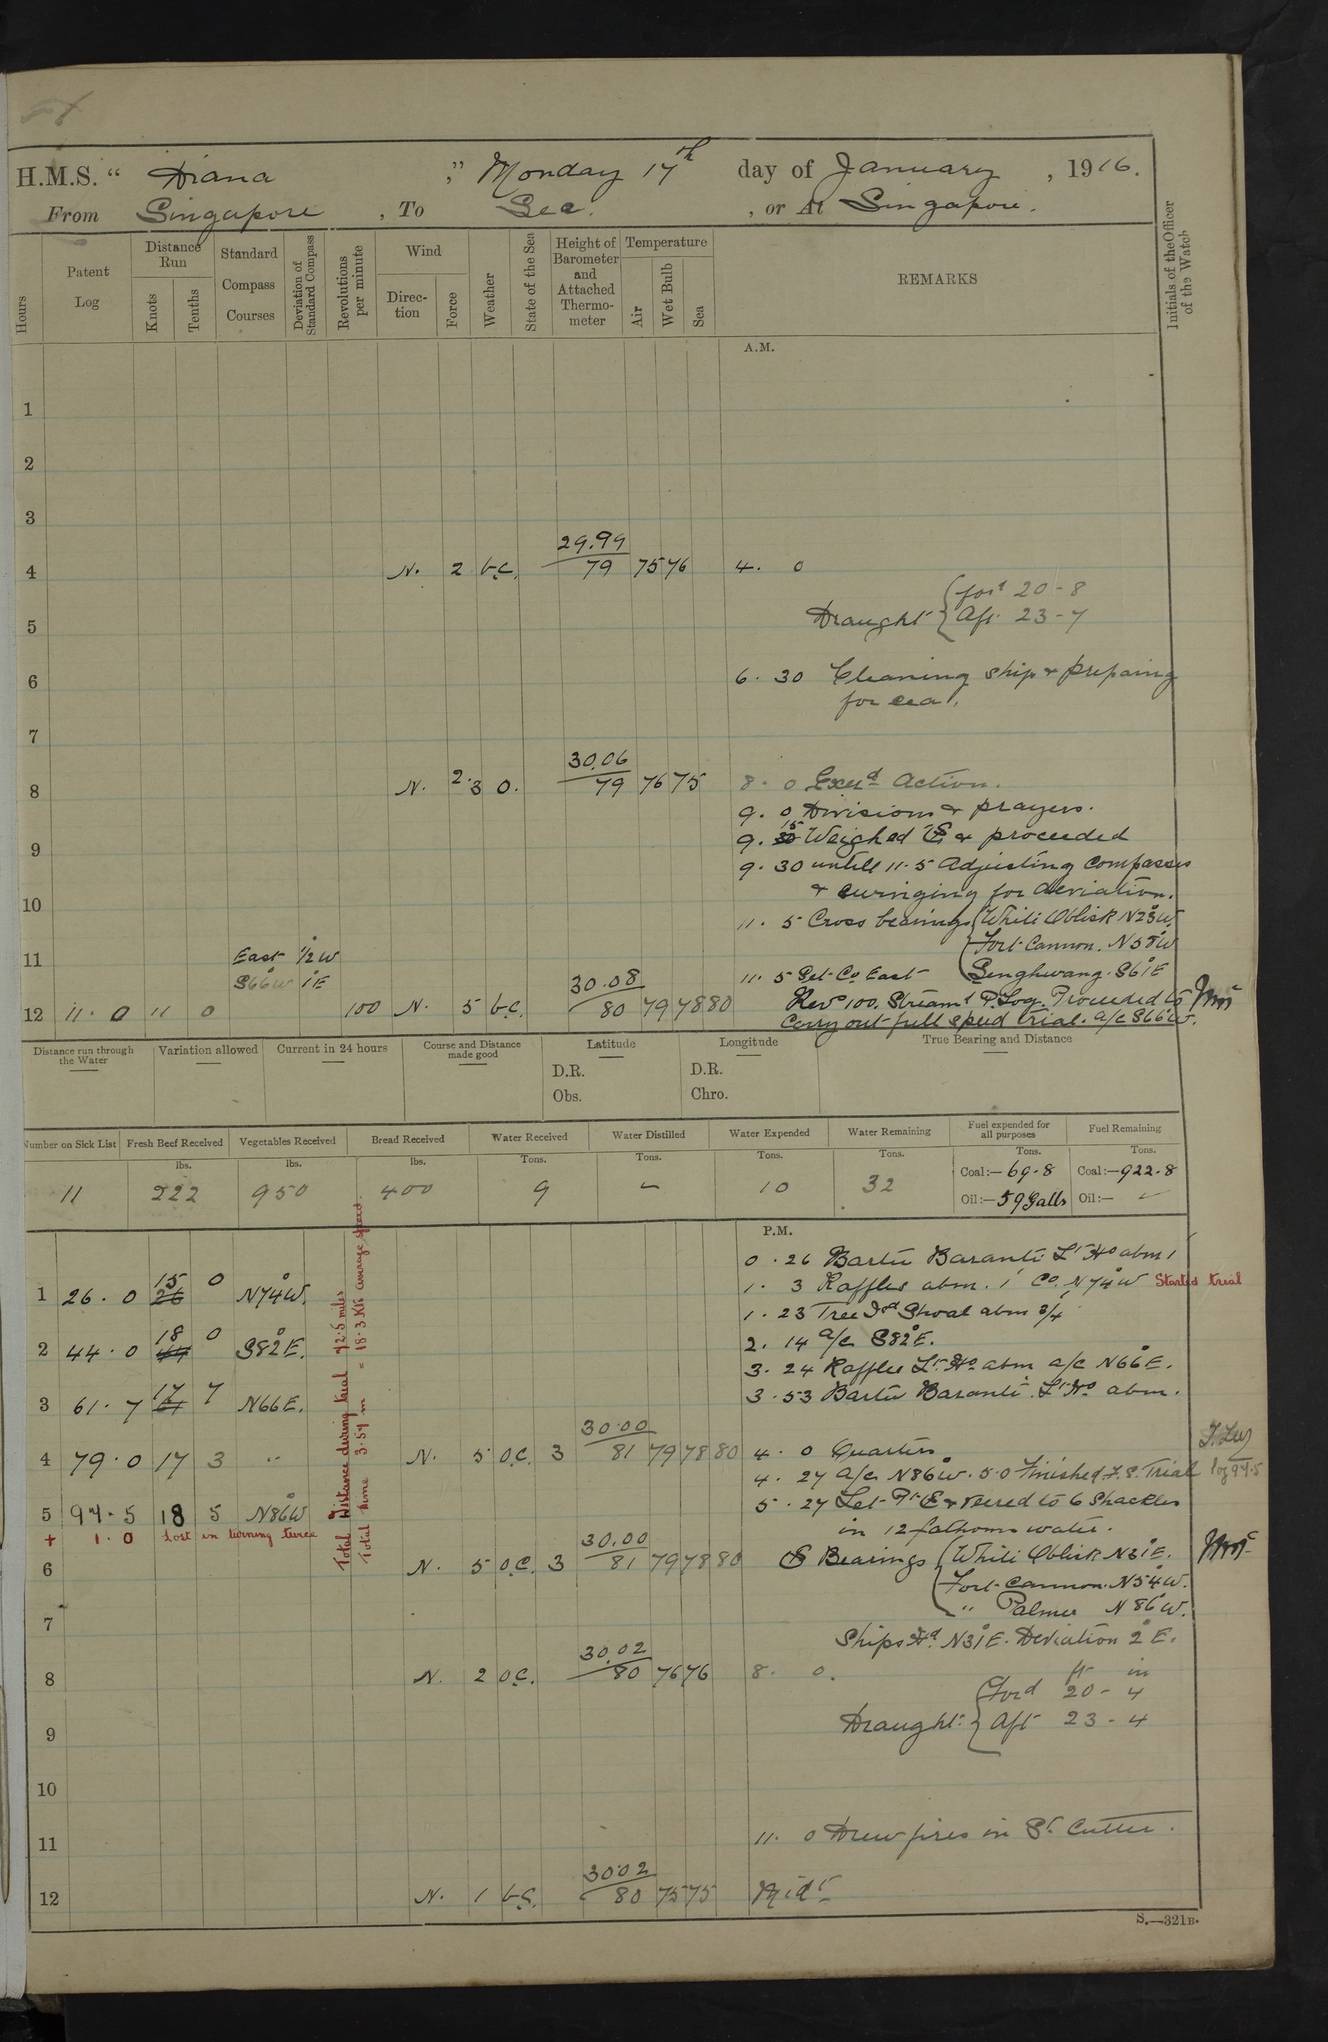 H.M.S. “ Diana ,” Monday 17th day of January , 1916.
From Singapore , To Sea. , or At Singapore.
Hours
Patent Log
Distance Run
Knots
Tenths
Standard Compass Courses
Deviation of Standard Compass
Revolutions per minute
Wind
Direction
Force
Weather
State of the Sea
Height of Barometer and Attached Thermometer
Temperature
Air
Wet Bulb
Sea
REMARKS
Initials of the Officer of the Watch
A.M.
1
2
3
29.99
4 N. 2 b.c. 79 75 76 4. 0
Draught { ford 20-8
Aft 23-7
5
6 6. 30 Cleaning ship & preparing
for sea.
7
30.06
8 N. 2.3 O. 79 76 75 8. 0 Exerd Action.
9. 0 Divisions & prayers.
9. 15 Weighed & proceeded
9 9. 30 untill 11.5 Adjusting Compasses
& swinging for deviation.
10
11. 5 Cross bearings { White Oblisk N23°W
Fort Cannon. N58°W
Senghwang. S61°E
11 East 1/2°W
S66°W 1°E 30.08 11. 5 Set Co East
12 11. 0 11 0 100 N. 5 b.c. 80 79 78 80 Revs 100. Streamd P. Log. Proceeded to
Carry out full speed trial. a/c S66°W.
Distance run through the Water
Variation allowed
Current in 24 hours
Course and Distance made good
Latitude
D.R.
Obs.
Longitude
D.R.
Chro.
True Bearing and Distance
Number on Sick List
Fresh Beef Received
Vegetables Received
Bread Received
Water Received
Water Distilled
Water Expended
Water Remaining
Fuel expended for all purposes
Fuel Remaining
lbs. lbs. lbs. Tons. Tons. Tons. Tons. Tons. Tons.
11 222 950 400 9 – 10 32 Coal:— 69.8 Coal:— 922.8
Oil:— 59 Galls Oil:—
P.M.
0. 26 Bartu Baranti Lt Ho abm 1'
1 26. 0 15 26 0 N74°W. 1. 3 Raffles abm. 1' Co. N74°W Started trial
1. 23 Tree Isd Shoal abm 3/4'
2 44. 0 18 44 0 S82°E. 2. 14 a/c S82°E.
3. 24 Raffles Lt Ho abm a/c N66°E.
3 61. 7 17 61 7 N66E. 3. 53 Bartu Baranti Lt Ho abm.
30.00
4 79. 0 17 3 " N. 5 O.C. 3 81 79 78 80 4. 0 Quarters
4. 27 a/c N86°W. 5.0 Finished F.S. Trial log 97.5
5 97. 5 18 5 N86°W 5. 27 Let & veered to 6 Shackles
in 12 fathoms water.
+ 1. 0 Lost in turning twice
30.00
6 N. 5 O.C. 3 81 79 78 80 Bearings { White Oblisk N31°E.
Fort Cannon. N54°W.
" Palmer N86°W.
7 Ships Hd. N31°E. Deviation 2°E.
30.02
8 N. 2 O.C. 80 76 76 8. 0.
ft in
Draught: { Ford 20 - 4
Aft 23 - 4
9
10
11 11. 0 Drew fires in St. Cutter.
30.02
12 N. 1 b.c. 80 75 75 Midt
Total Distance during trial 72.5 miles
Total time 3.57 m = 18.3 Kts average speed.
S.—321B.